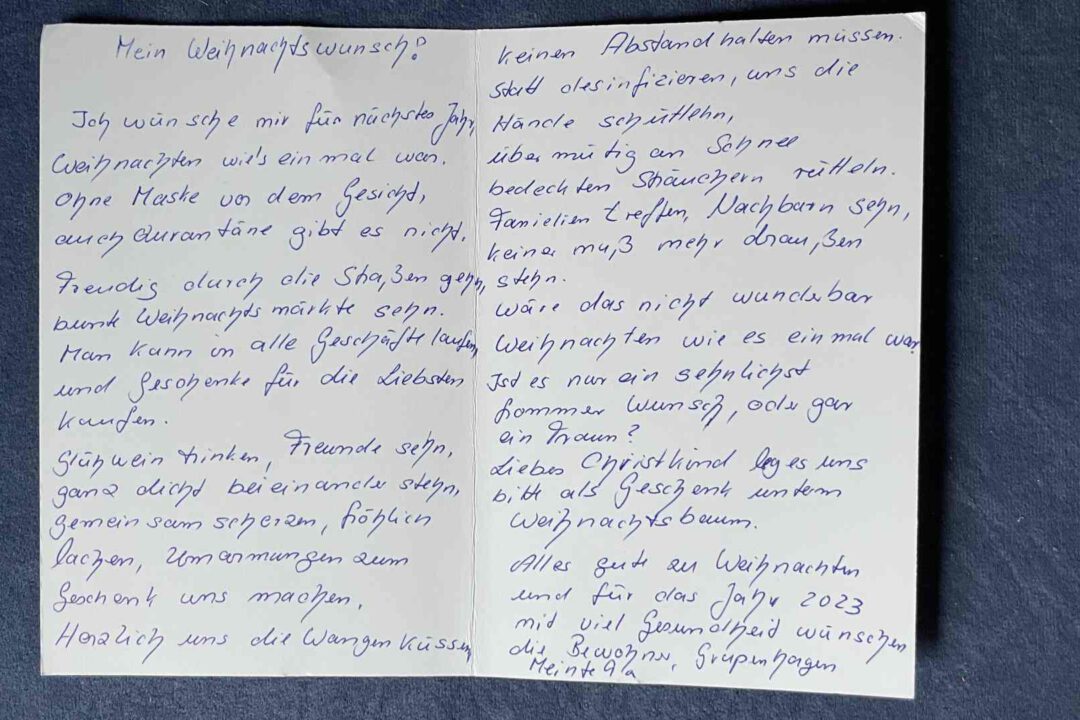 Mein Weihnachtswunsch?
Ich wünsche mir für nächstes Jahr,
Weihnachten wie's einmal war.
Ohne Maske vor dem Gesicht,
auch Qurantäne gibt es nicht.
Freudig durch die Staßen gehn,
bunte Weihnachtsmärkte sehn.
Man kann in alle Geschäfte laufen,
und Geschenke für die Liebsten
kaufen.
Glühwein trinken, Freunde sehn,
ganz dicht beieinander stehn,
gemeinsam scherzen, fröhlich
lachen, Umarmungen zum
Geschenk uns machen,
Herzlich uns die Wangen küssen,
keinen Abstand halten müssen.
Statt desinfizieren, uns die
Hände schütteln,
übermütig an Schnee
bedeckten Sträuchern rütteln.
Famielien treffen, Nachbarn sehn,
keiner muß mehr draußen
stehn.
Wäre das nicht wunderbar
Weihnachten wie es einmal war
Ist es nur ein sehnlichst
frommer Wunsch, oder gar
ein Traum?
Liebes Christkind leg es uns
bitte als Geschenk unterm
Weihnachtsbaum.
Alles gute zu Weihnachten
und für das Jahr 2023
mit viel Gesundheit wünschen
die Bewohner, Grupenhagen